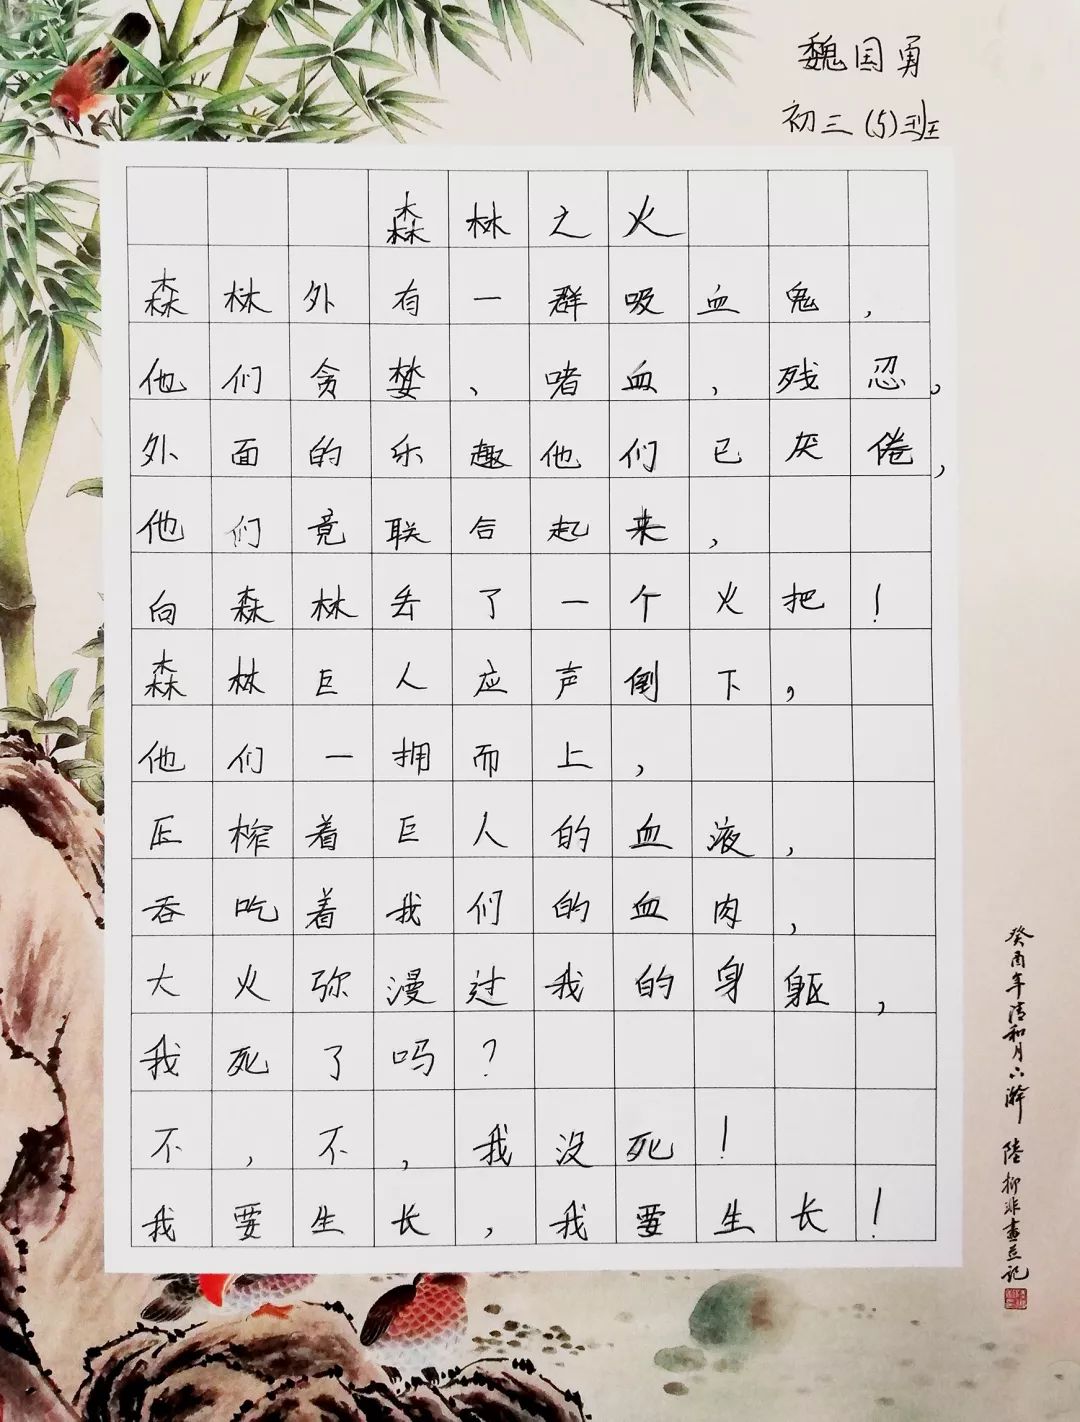 魏国勇
初三(5)班
森林之火
森林外有一群吸血鬼，
他们贪婪、嗜血，残忍，
外面的乐趣他们已厌倦，
他们竟联合起来，
向森林丢了一个火把！
森林巨人应声倒下，
他们一拥而上，
压榨着巨人的血液，
吞吃着我们的血肉，
大火弥漫过我的身躯，
我死了吗？
不，不，我没死！
我要生长，我要生长！
癸酉年清和月六澣 陸抑非畫并记